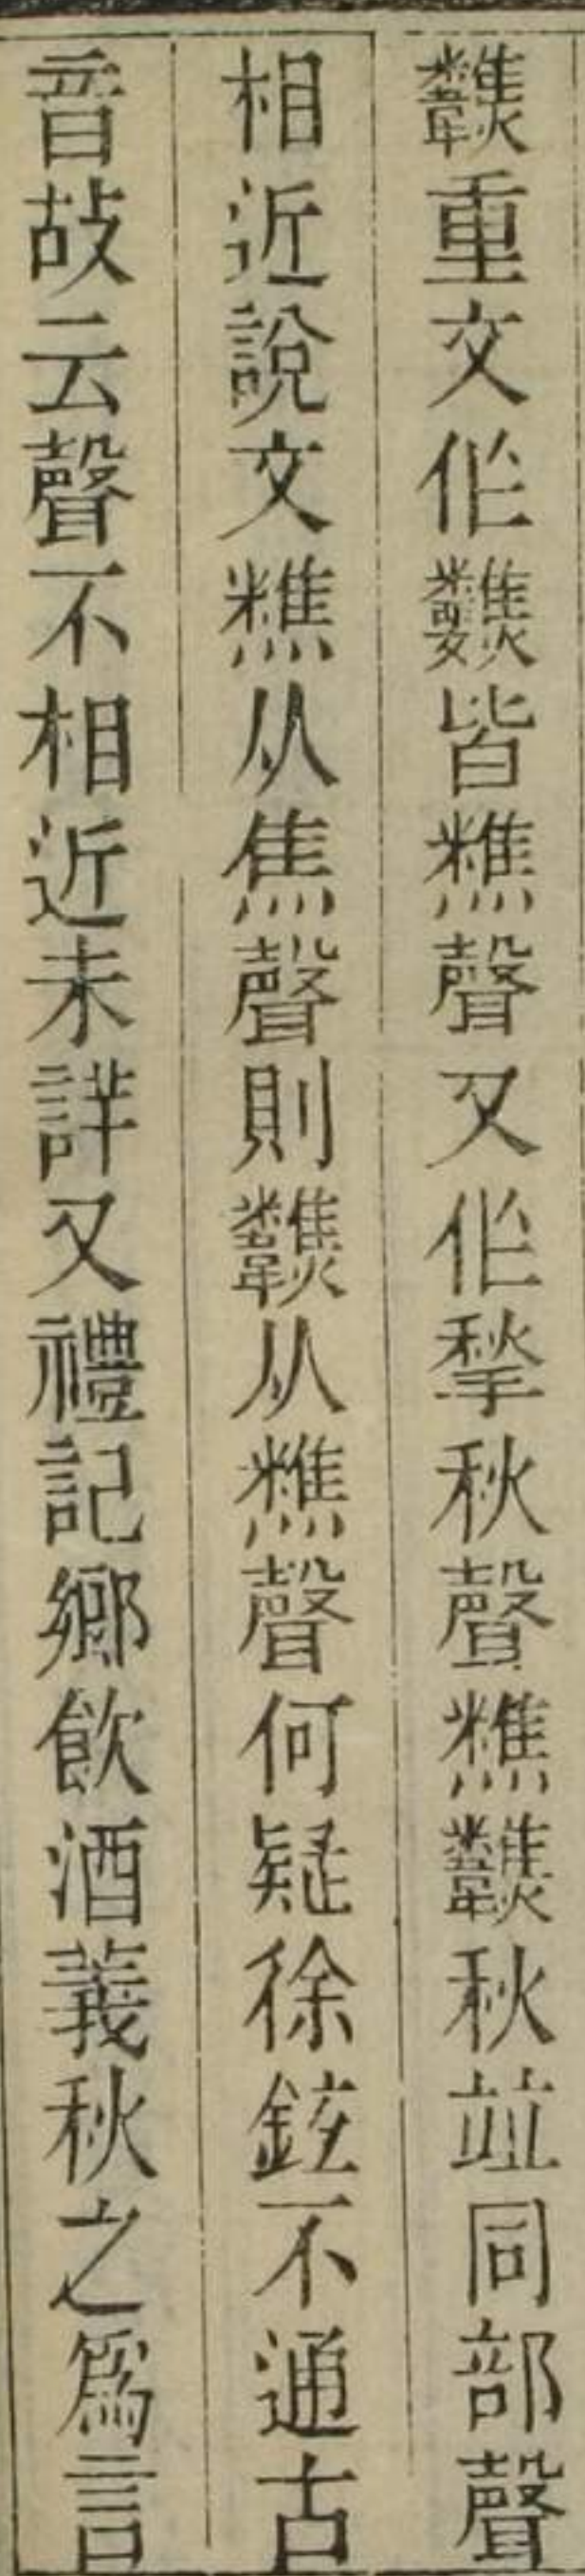 𩏷重文作皆𥼚聲又作揫秋聲𥼚𩏷秋竝同部聲
相近說文𥼚从焦聲則𩏷从𥼚聲何疑徐鉉不通古
音故云聲不相近未詳又禮記鄉飲酒義秋之爲言